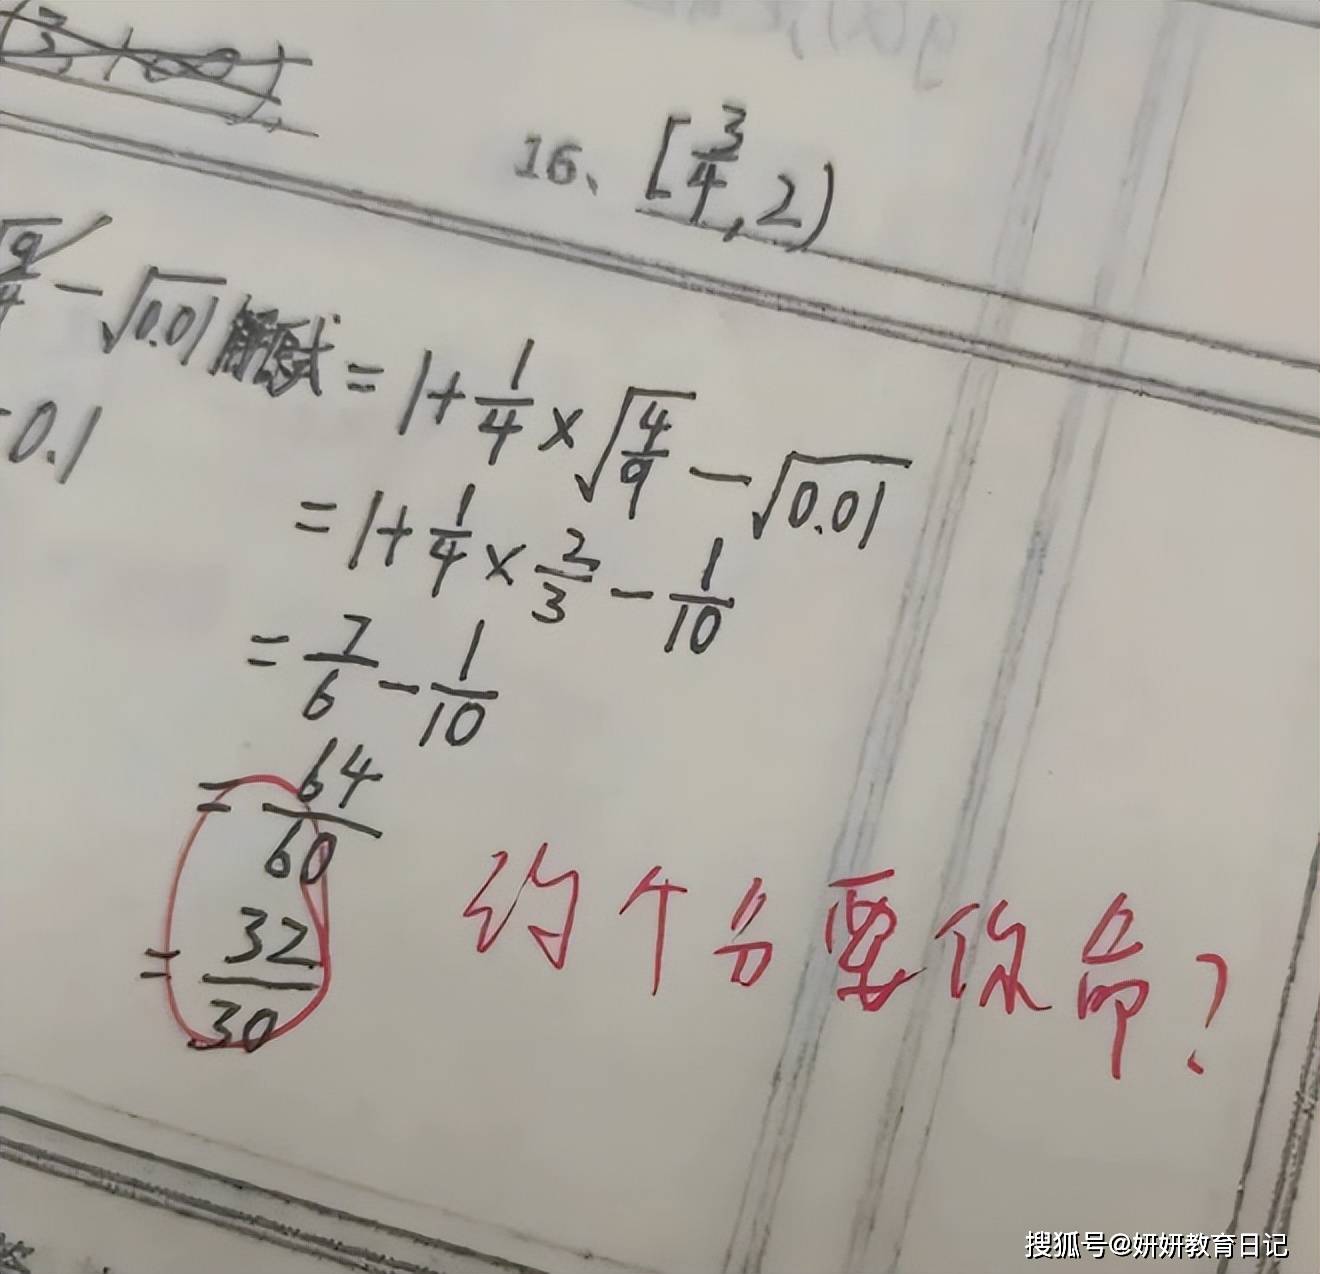 16、[3/4, 2)
√(9/4) - √0.01 解:原式 = 1+1/4×√(4/9) - √0.01
-0.1
= 1+1/4×2/3 - 1/10
= 7/6 - 1/10
= 64/60
= 32/30
约个分要你命?
搜狐号@妍妍教育日记